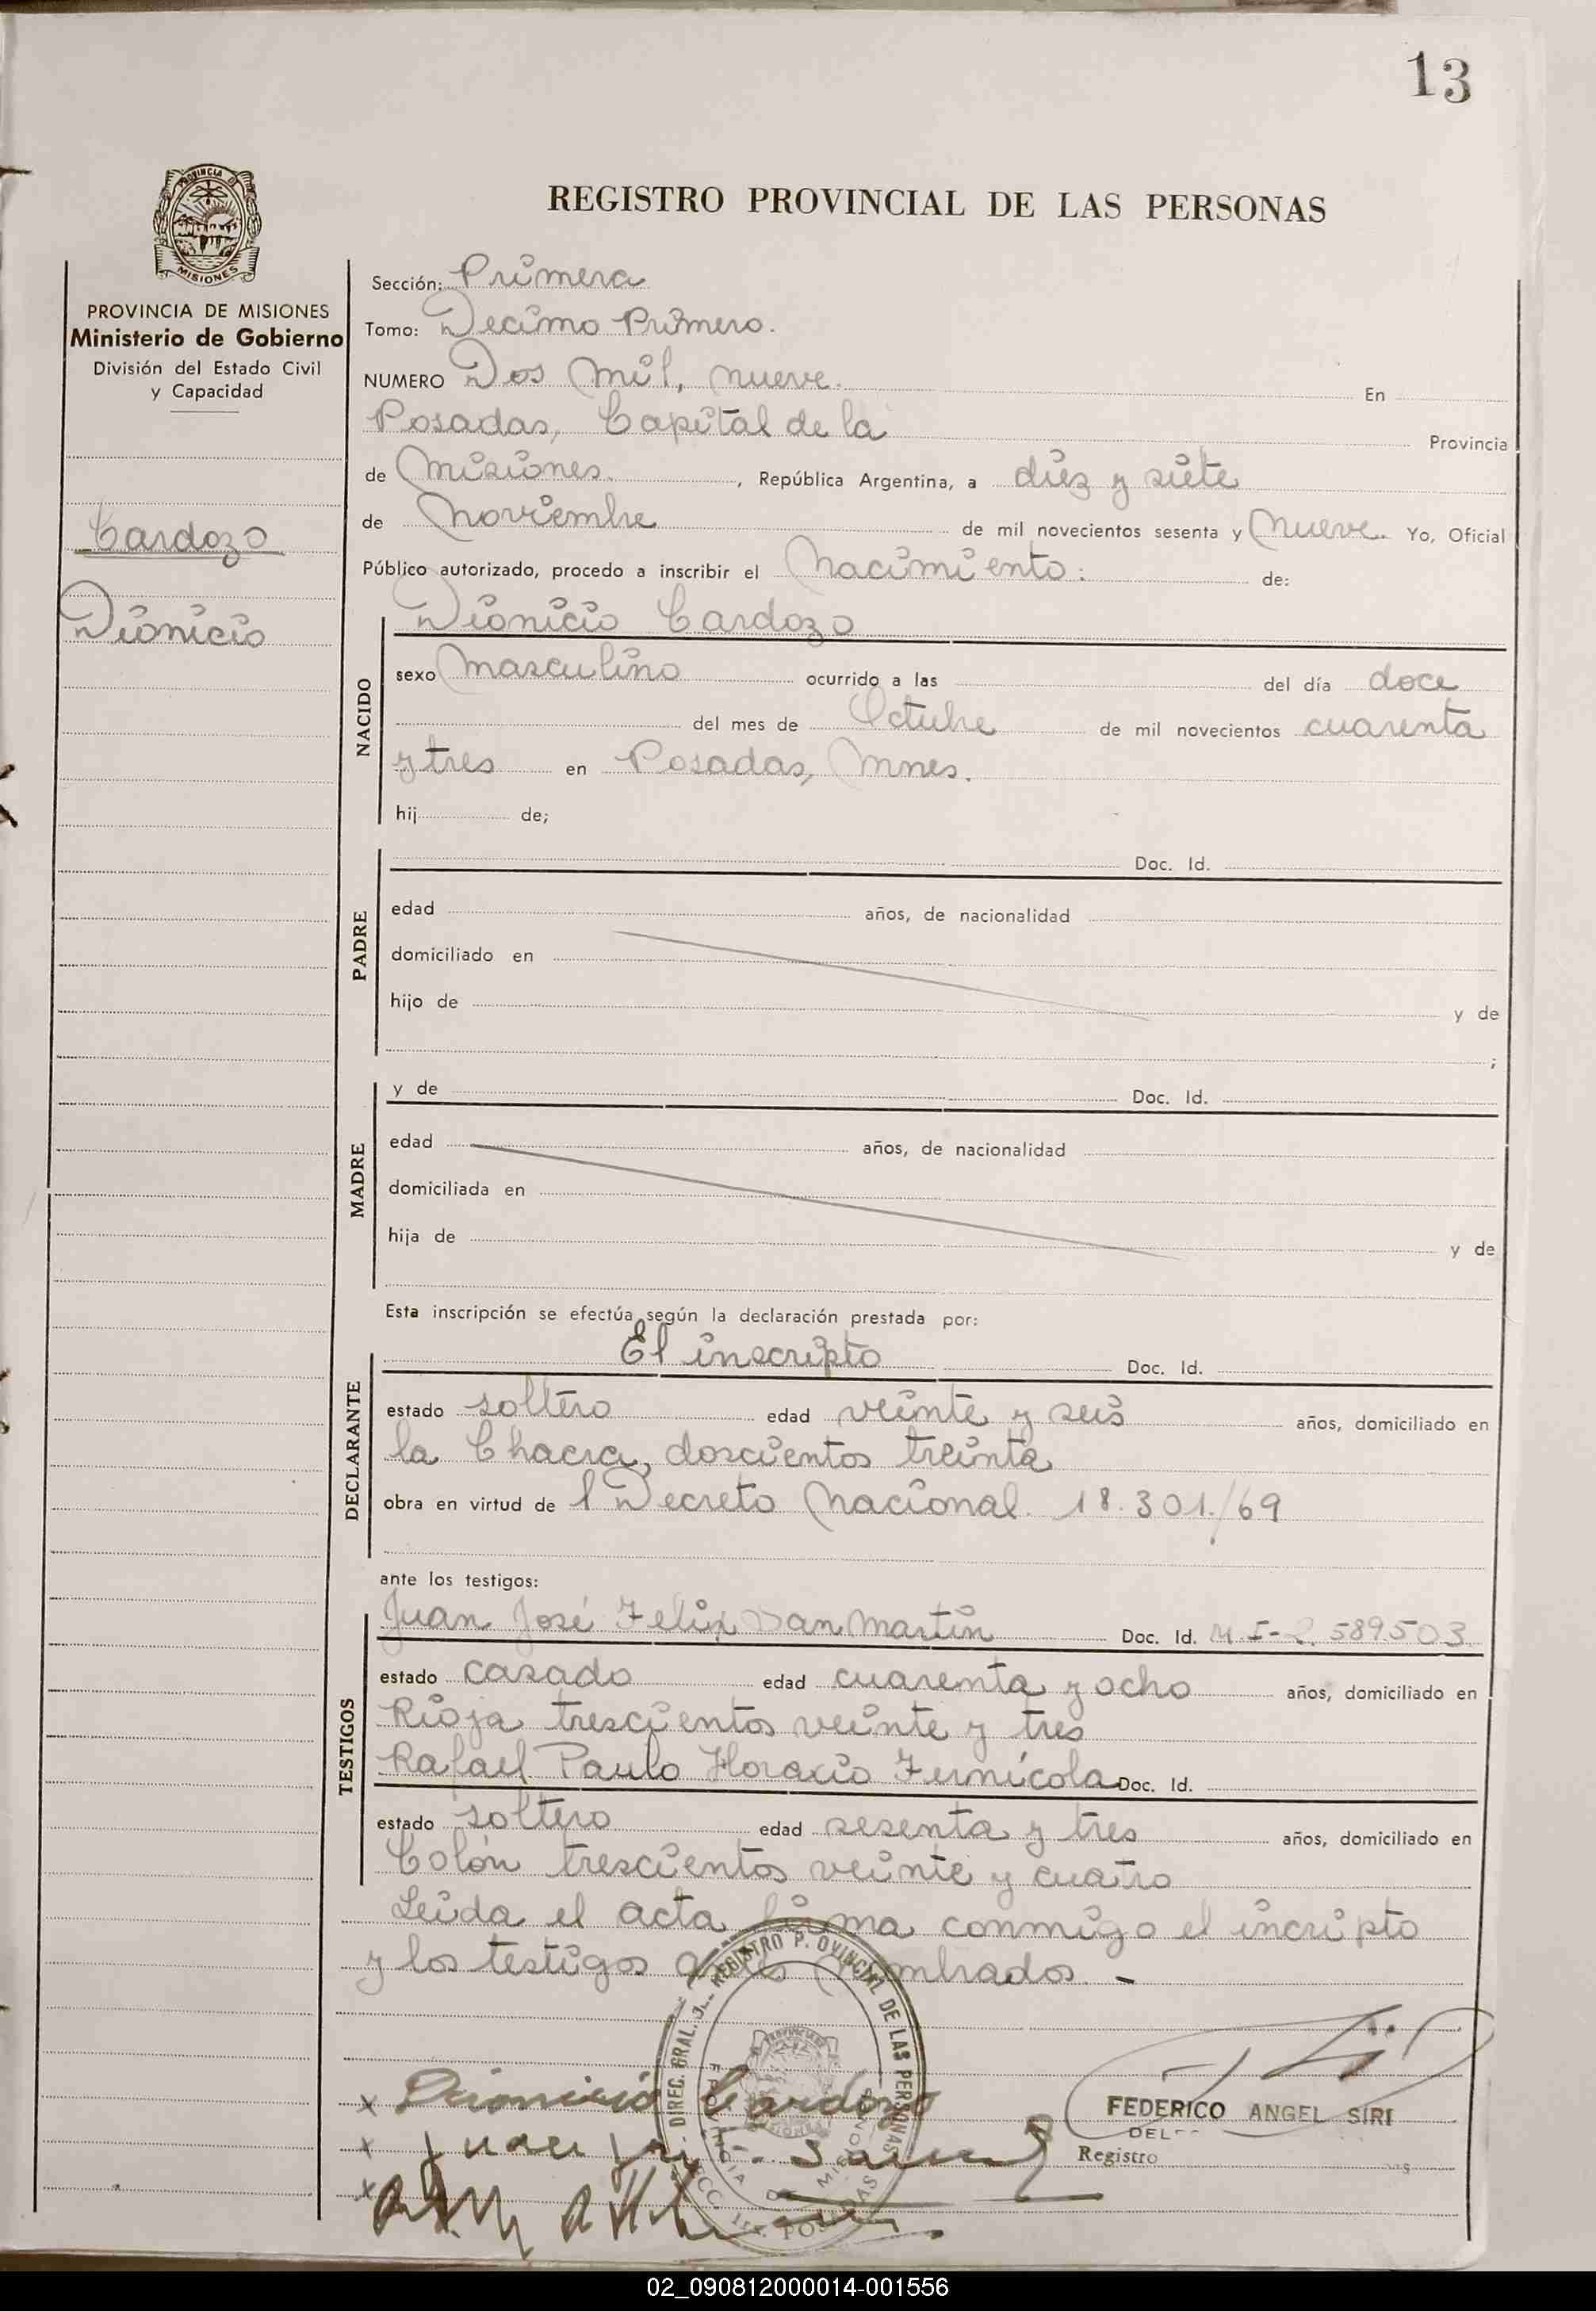 13
REGISTRO PROVINCIAL DE LAS PERSONAS
PROVINCIA DE MISIONES
PROVINCIA DE MISIONES
Ministerio de Gobierno
División del Estado Civil
y Capacidad
Cardozo
Dionicio
Sección: Primera
Tomo: Decimo Primero.
NUMERO Dos mil, nueve. En
Posadas, Capital de la Provincia
de Misiones. , República Argentina, a diez y siete
de Noviembre de mil novecientos sesenta y Nueve. Yo, Oficial
Público autorizado, procedo a inscribir el Nacimiento: de:
Dionicio Cardozo
NACIDO
sexo Masculino ocurrido a las del día doce
del mes de Octubre de mil novecientos cuarenta
y tres en Posadas, Mnes.
hij de;
PADRE
Doc. Id.
edad años, de nacionalidad
domiciliado en
hijo de y de
;
MADRE
y de Doc. Id.
edad años, de nacionalidad
domiciliada en
hija de y de
Esta inscripción se efectúa según la declaración prestada por:
DECLARANTE
El inscripto Doc. Id.
estado soltero edad veinte y seis años, domiciliado en
la Chacra, doscientos treinta
obra en virtud de l Decreto Nacional. 18.301./69
ante los testigos:
TESTIGOS
Juan José Felix San Martin Doc. Id. M.I-2.589503
estado casado edad cuarenta y ocho años, domiciliado en
Rioja trescientos veinte y tres
Rafael Paulo Horacio Fernícola Doc. Id.
estado soltero edad sesenta y tres años, domiciliado en
Colón trescientos veinte y cuatro
Leida el acta firma conmigo el incripto
y los testigos antes nombrados. -
x Dionicio Cardozo
x Juan
x
DIREC. GRAL. REGISTRO P. OVINCIAL DE LAS PERSONAS
PROVINCIA DE MISIONES
POSADAS
FEDERICO ANGEL SIRI
DEL
Registro
02_090812000014-001556